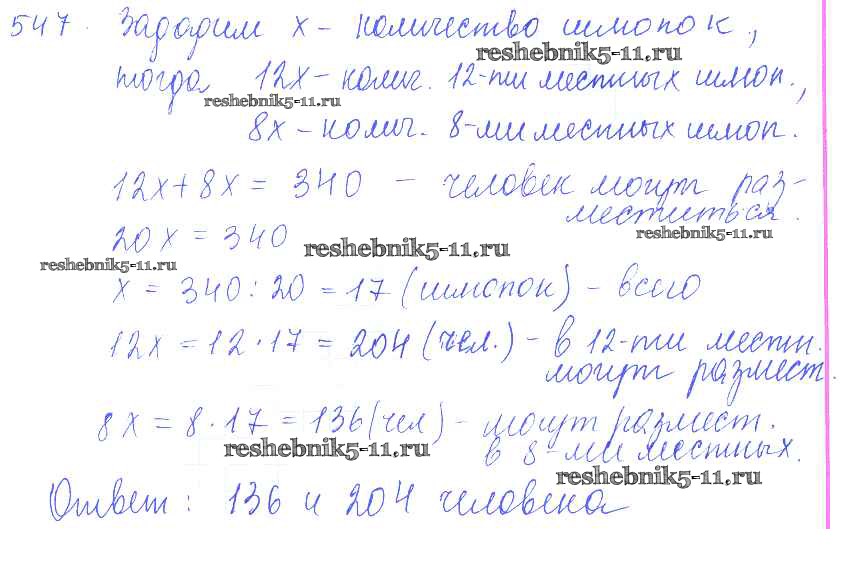 547. Зададим x – количество шлюпок,
reshebnik5-11.ru
тогда 12x – колич. 12-ти местных шлюп.,
reshebnik5-11.ru
8x – колич. 8-ми местных шлюп.
12x + 8x = 340 – человек могут раз-
меститься.
reshebnik5-11.ru
20x = 340
reshebnik5-11.ru
reshebnik5-11.ru
x = 340 : 20 = 17 (шлюпок) – всего
12x = 12 · 17 = 204 (чел.) – в 12-ти местн.
могут размест.
8x = 8 · 17 = 136 (чел) – могут размест.
в 8-ми местных.
reshebnik5-11.ru
reshebnik5-11.ru
Ответ: 136 и 204 человека